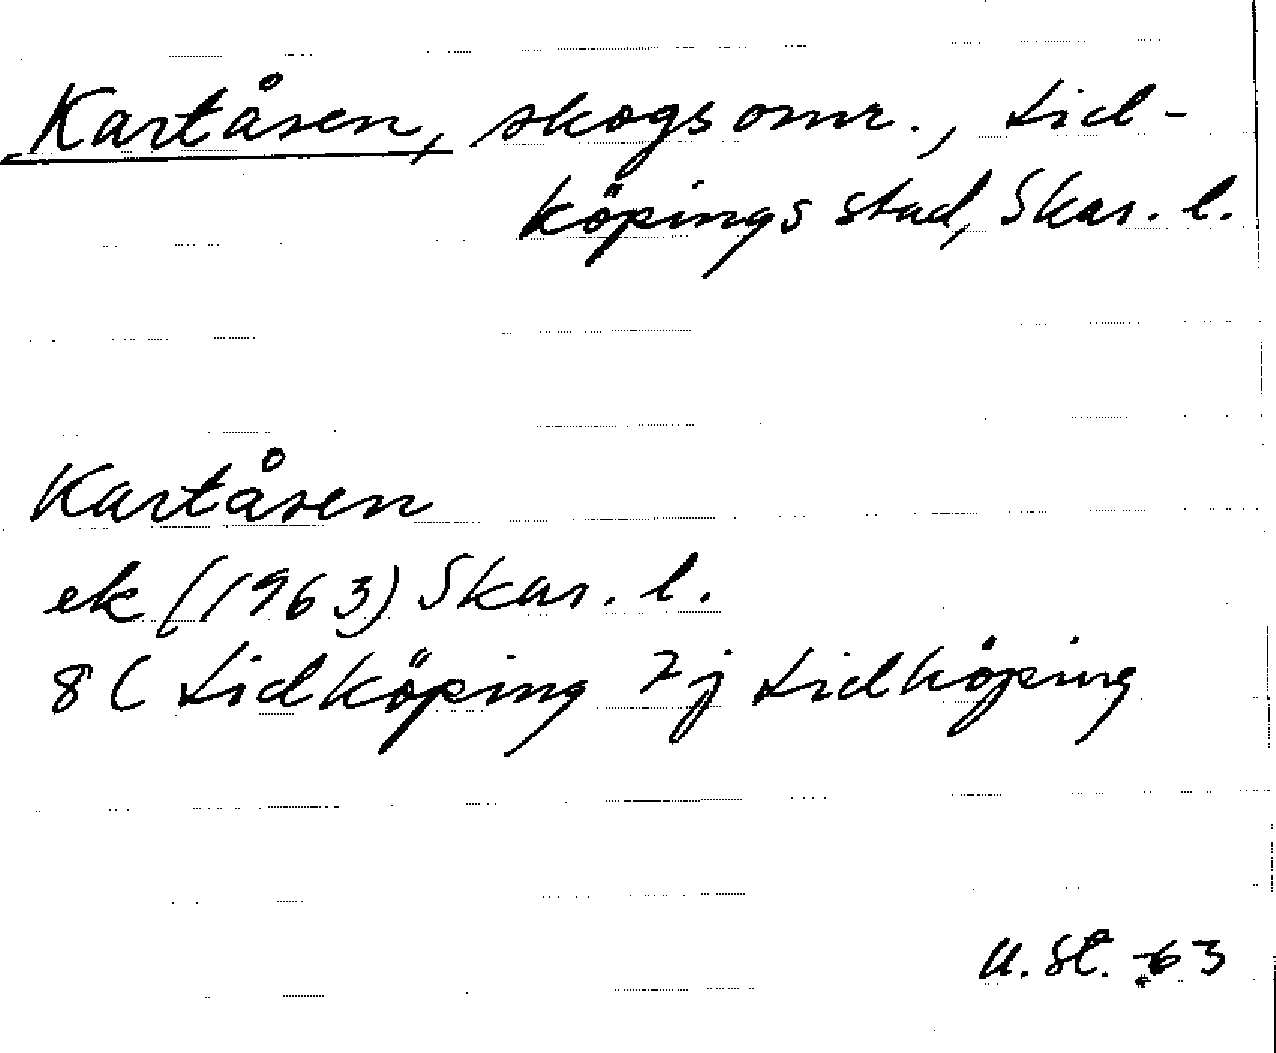 Kartåsen, skogsomr., Lid-
köpings stad, Skar. l.
Kartåsen
ek (1963) Skar. l.
8C Lidköping 7j Lidköping
U. St. -63